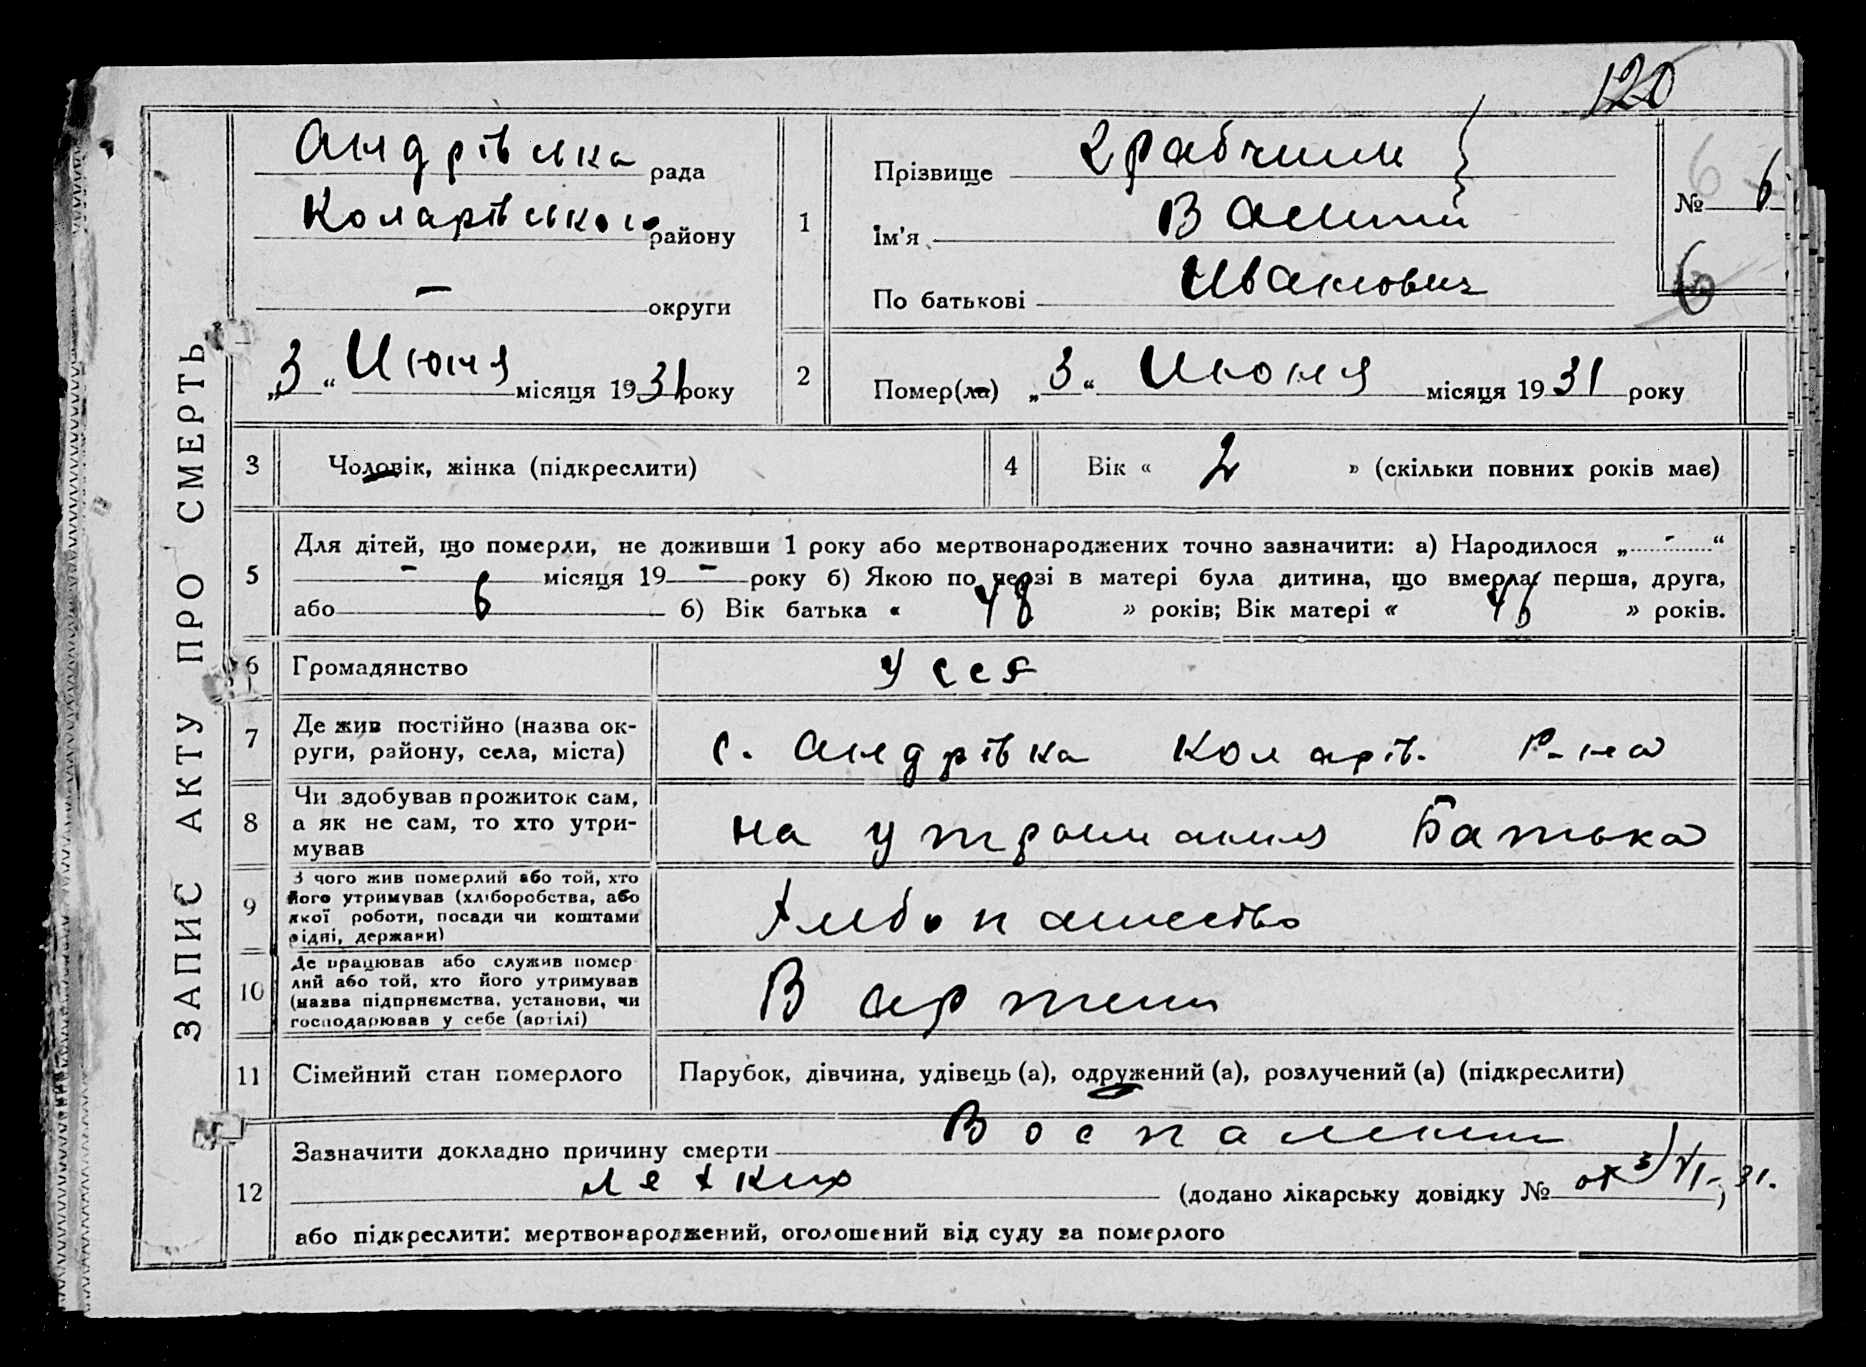 120
ЗАПИС АКТУ ПРО СМЕРТЬ
Андрівська рада
Коларівського району
— округи
„3“ Июня місяця 1931 року
1
Прізвище Грабчили
Ім’я Василий
По батькові Иванович
№ 6
6
6
2
Помер(ла) „3“ Июня місяця 1931 року
3 Чоловік, жінка (підкреслити)
4 Вік « 2 » (скільки повних років має)
5 Для дітей, що померли, не доживши 1 року або мертвонароджених точно зазначити: а) Народилося „ - “
- місяця 19 - року б) Якою по черзі в матері була дитина, що вмерла: перша, друга,
або 6 б) Вік батька « 48 » років; Вік матері « 46 » років.
6 Громадянство УССР
7 Де жив постійно (назва ок-
руги, району, села, міста)
с. Андрівка Коларів. р-на
8 Чи здобував прожиток сам,
а як не сам, то хто утри-
мував
на утримання Батька
9 З чого жив померлий або той, хто
його утримував (хліборобства, або
якої роботи, посади чи коштами
рідні, держави)
Хлебопашество
10 Де працював або служив помер-
лий або той, хто його утримував
(назва підприємства, установи, чи
господарював у себе (артілі)
В артели
11 Сімейний стан померлого Парубок, дівчина, удівець (а), одружений (а), розлучений (а) (підкреслити)
12 Зазначити докладно причину смерти Воспаление
легких (додано лікарську довідку № от 3/VI-31.,
або підкреслити: мертвонароджений, оголошений від суду за померлого